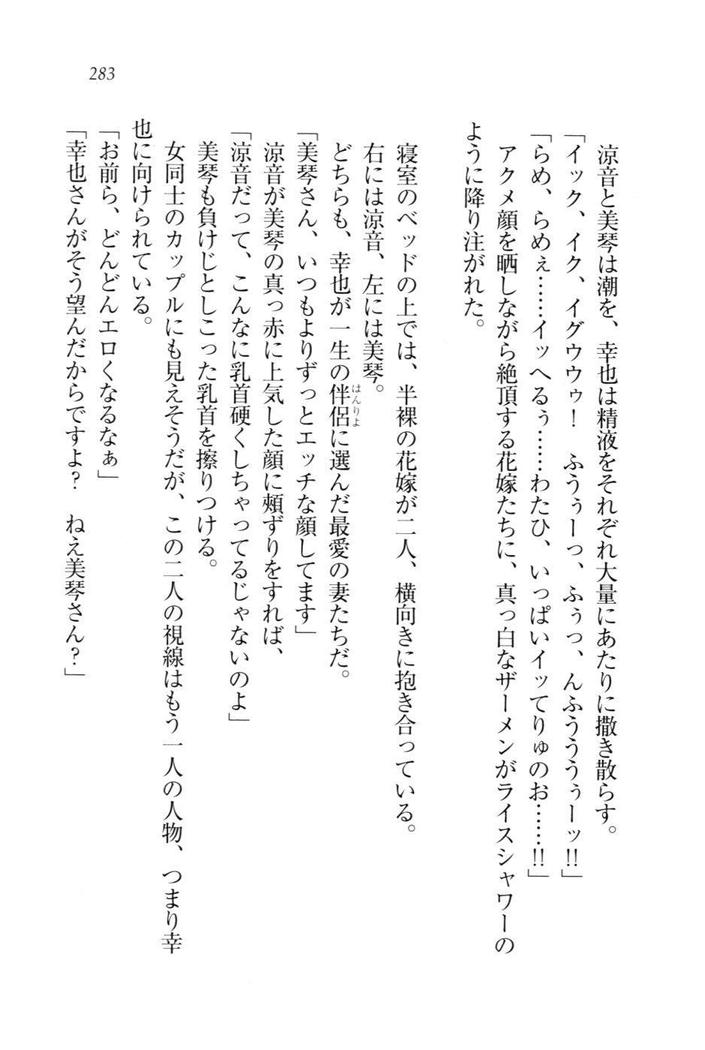 283
涼音と美琴は潮を、幸也は精液をそれぞれ大量にあたりに撒き散らす。
「イック、イク、イグウウゥ！　ふうぅーっ、ふぅっ、んふうううぅーッ!!」
「らめ、らめぇ……イッへるぅ……わたひ、いっぱいイッてりゅのお……!!」
アクメ顔を晒しながら絶頂する花嫁たちに、真っ白なザーメンがライスシャワーの
ように降り注がれた。
寝室のベッドの上では、半裸の花嫁が二人、横向きに抱き合っている。
右には涼音、左には美琴。
どちらも、幸也が一生の伴侶はんりよに選んだ最愛の妻たちだ。
「美琴さん、いつもよりずっとエッチな顔してます」
涼音が美琴の真っ赤に上気した顔に頰ずりをすれば、
「涼音だって、こんなに乳首硬くしちゃってるじゃないのよ」
美琴も負けじとしこった乳首を擦りつける。
女同士のカップルにも見えそうだが、この二人の視線はもう一人の人物、つまり幸
也に向けられている。
「お前ら、どんどんエロくなるなぁ」
「幸也さんがそう望んだからですよ？　ねえ美琴さん？」